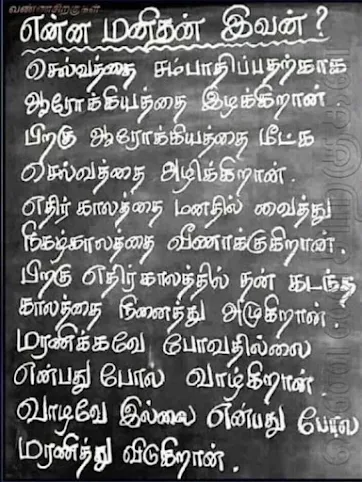 வண்ணசிறகுகள்
என்ன மனிதன் இவன் ?
செல்வத்தை சம்பாதிப்பதற்காக
ஆரோக்கியத்தை இழக்கிறான்
பிறகு ஆரோக்கியத்தை மீட்க
செல்வத்தை அழிக்கிறான்.
எதிர்காலத்தை மனதில் வைத்து
நிகழ்காலத்தை வீணாக்குகிறான்.
பிறகு எதிர்காலத்தில் தன் கடந்த
காலத்தை நினைத்து அழுகிறான்.
மரணிக்கவே போவதில்லை
என்பது போல் வாழ்கிறான்.
வாழவே இல்லை என்பது போல
மரணித்து விடுகிறான்.